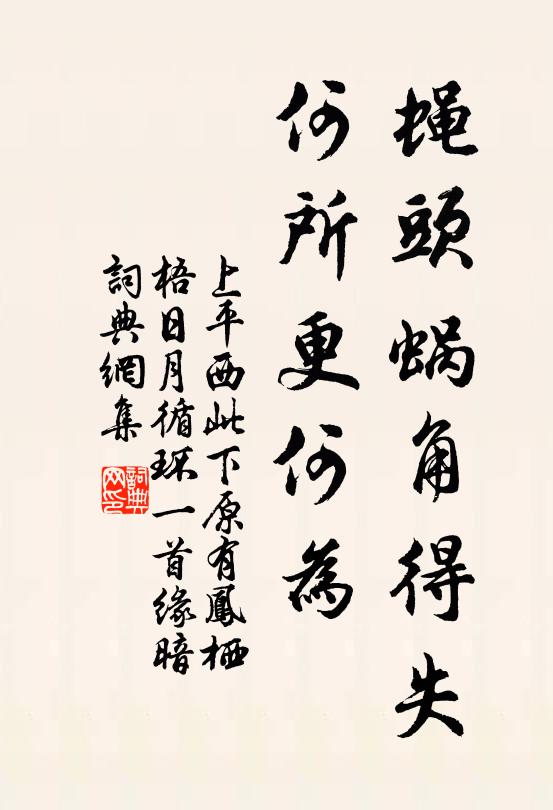 蝇頭蜗角得失
何所更何為
上平西此下原有鳳栖
梧日月循环一首缘暗
詞典網集
詞典網印